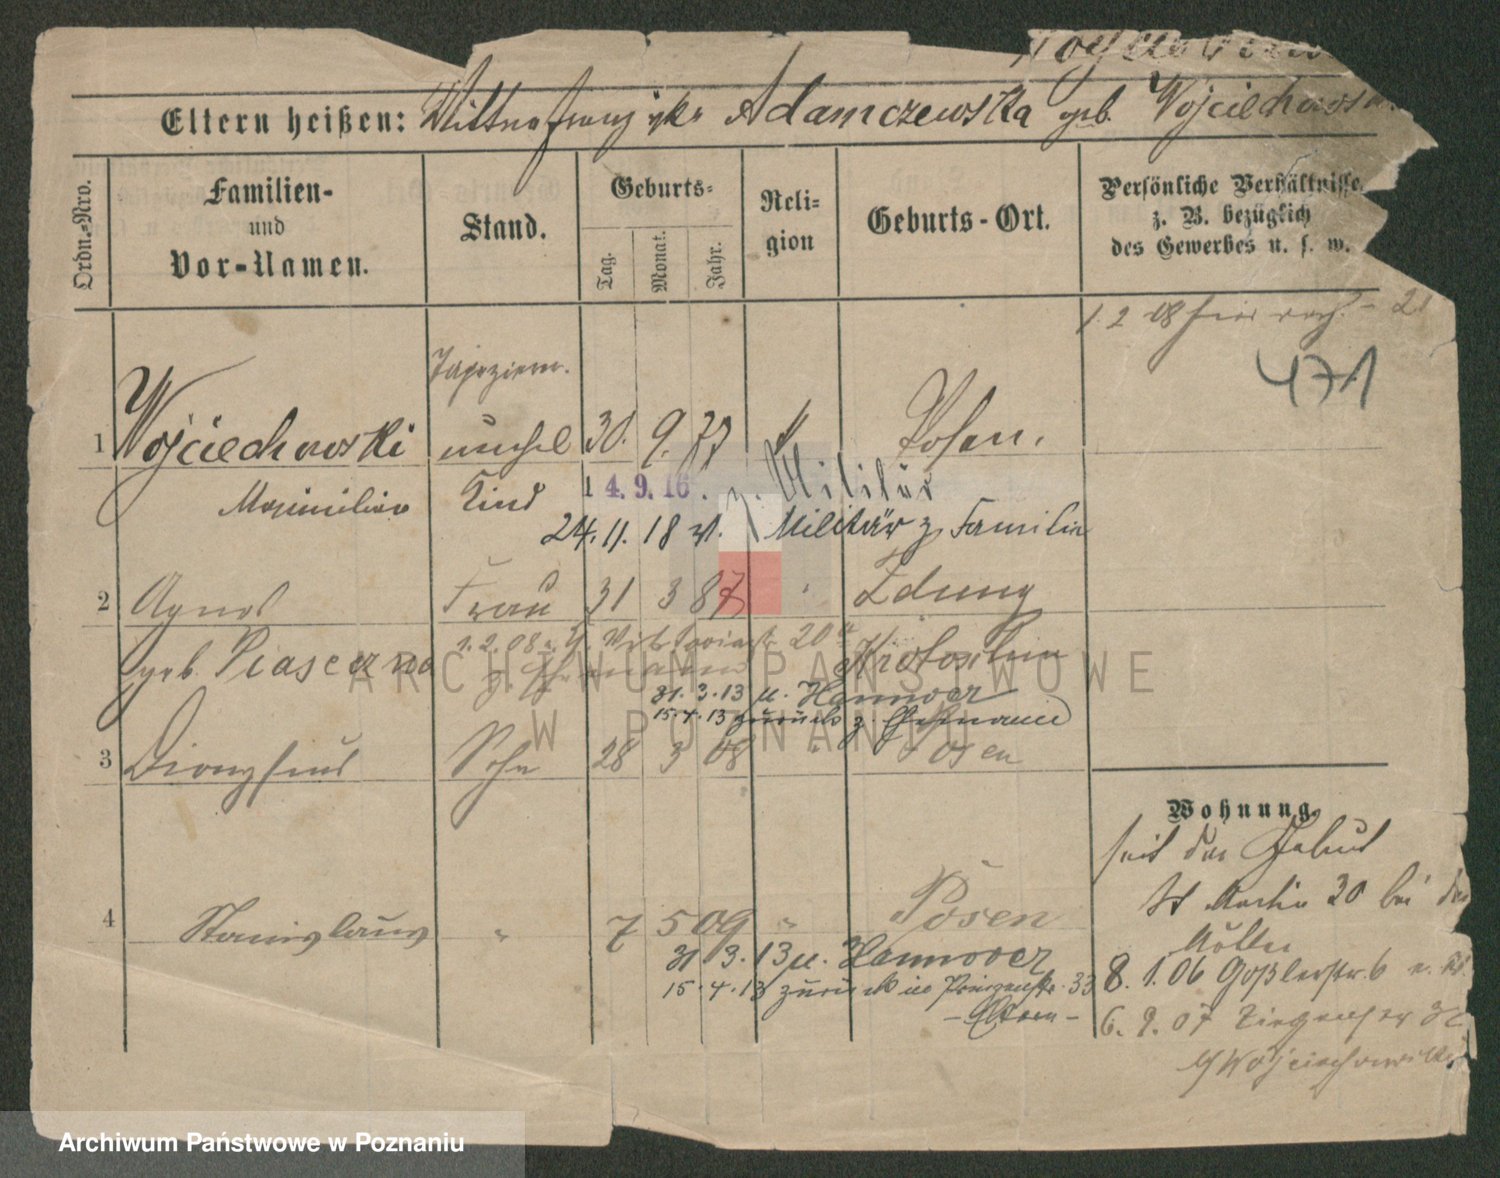 Eltern heißen: Adamczewska geb. Wojciechows
Ordn.-Nro.
Familien-
und
Vor-Namen.
Stand.
Geburts-
Tag.
Monat.
Jahr.
Reli-
gion
Geburts-Ort.
Persönliche Verhältnisse
z. B. bezüglich
des Gewerbes u. s. w.
1. 2 08
471
1 Wojciechowski 30. 9. 77 Posen.
Maximilian Kind 14. 9. 16. z. Militär
24. 11. 18 v. Militär z. Familie
2 Agnes Frau 31 3 87 " Zduny
geb. Piaseczna 1. 2. 08 Krotoschin
31. 3. 13 u. Hannover
15. 4. 13 zurück z. Ehemann
3 Dionysius Sohn 28 3 08 " Posen
4 Stanislaus " 7 5 09 " Posen
31 3. 13 u. Hannover
15. 4. 13 zurück Prinzenstr. 33
- Eltern -
Wohnung.
seit der Geburt
St Martin 30 bei der
Mutter
8. 1. 06 Goßlerstr. 6
6. 9. 07
Wojciechowski
ARCHIWUM PAŃSTWOWE
W POZNANIU
Archiwum Państwowe w Poznaniu